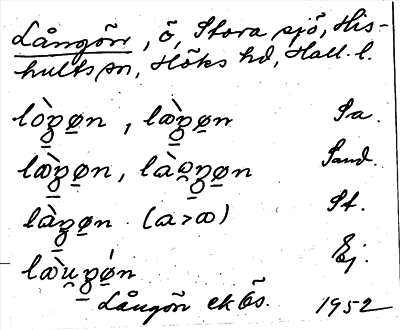 Långön, ö, Stora sjö, His-
hults sn, Höks hd, Hall. l.
lòŋøn, læ̀ŋøn Sa.
læ̀ŋøn, làəŋøn Sand.
làŋøn (a>æ) St.
læ̀uŋøn Ej.
Långön ek Ös. 1952